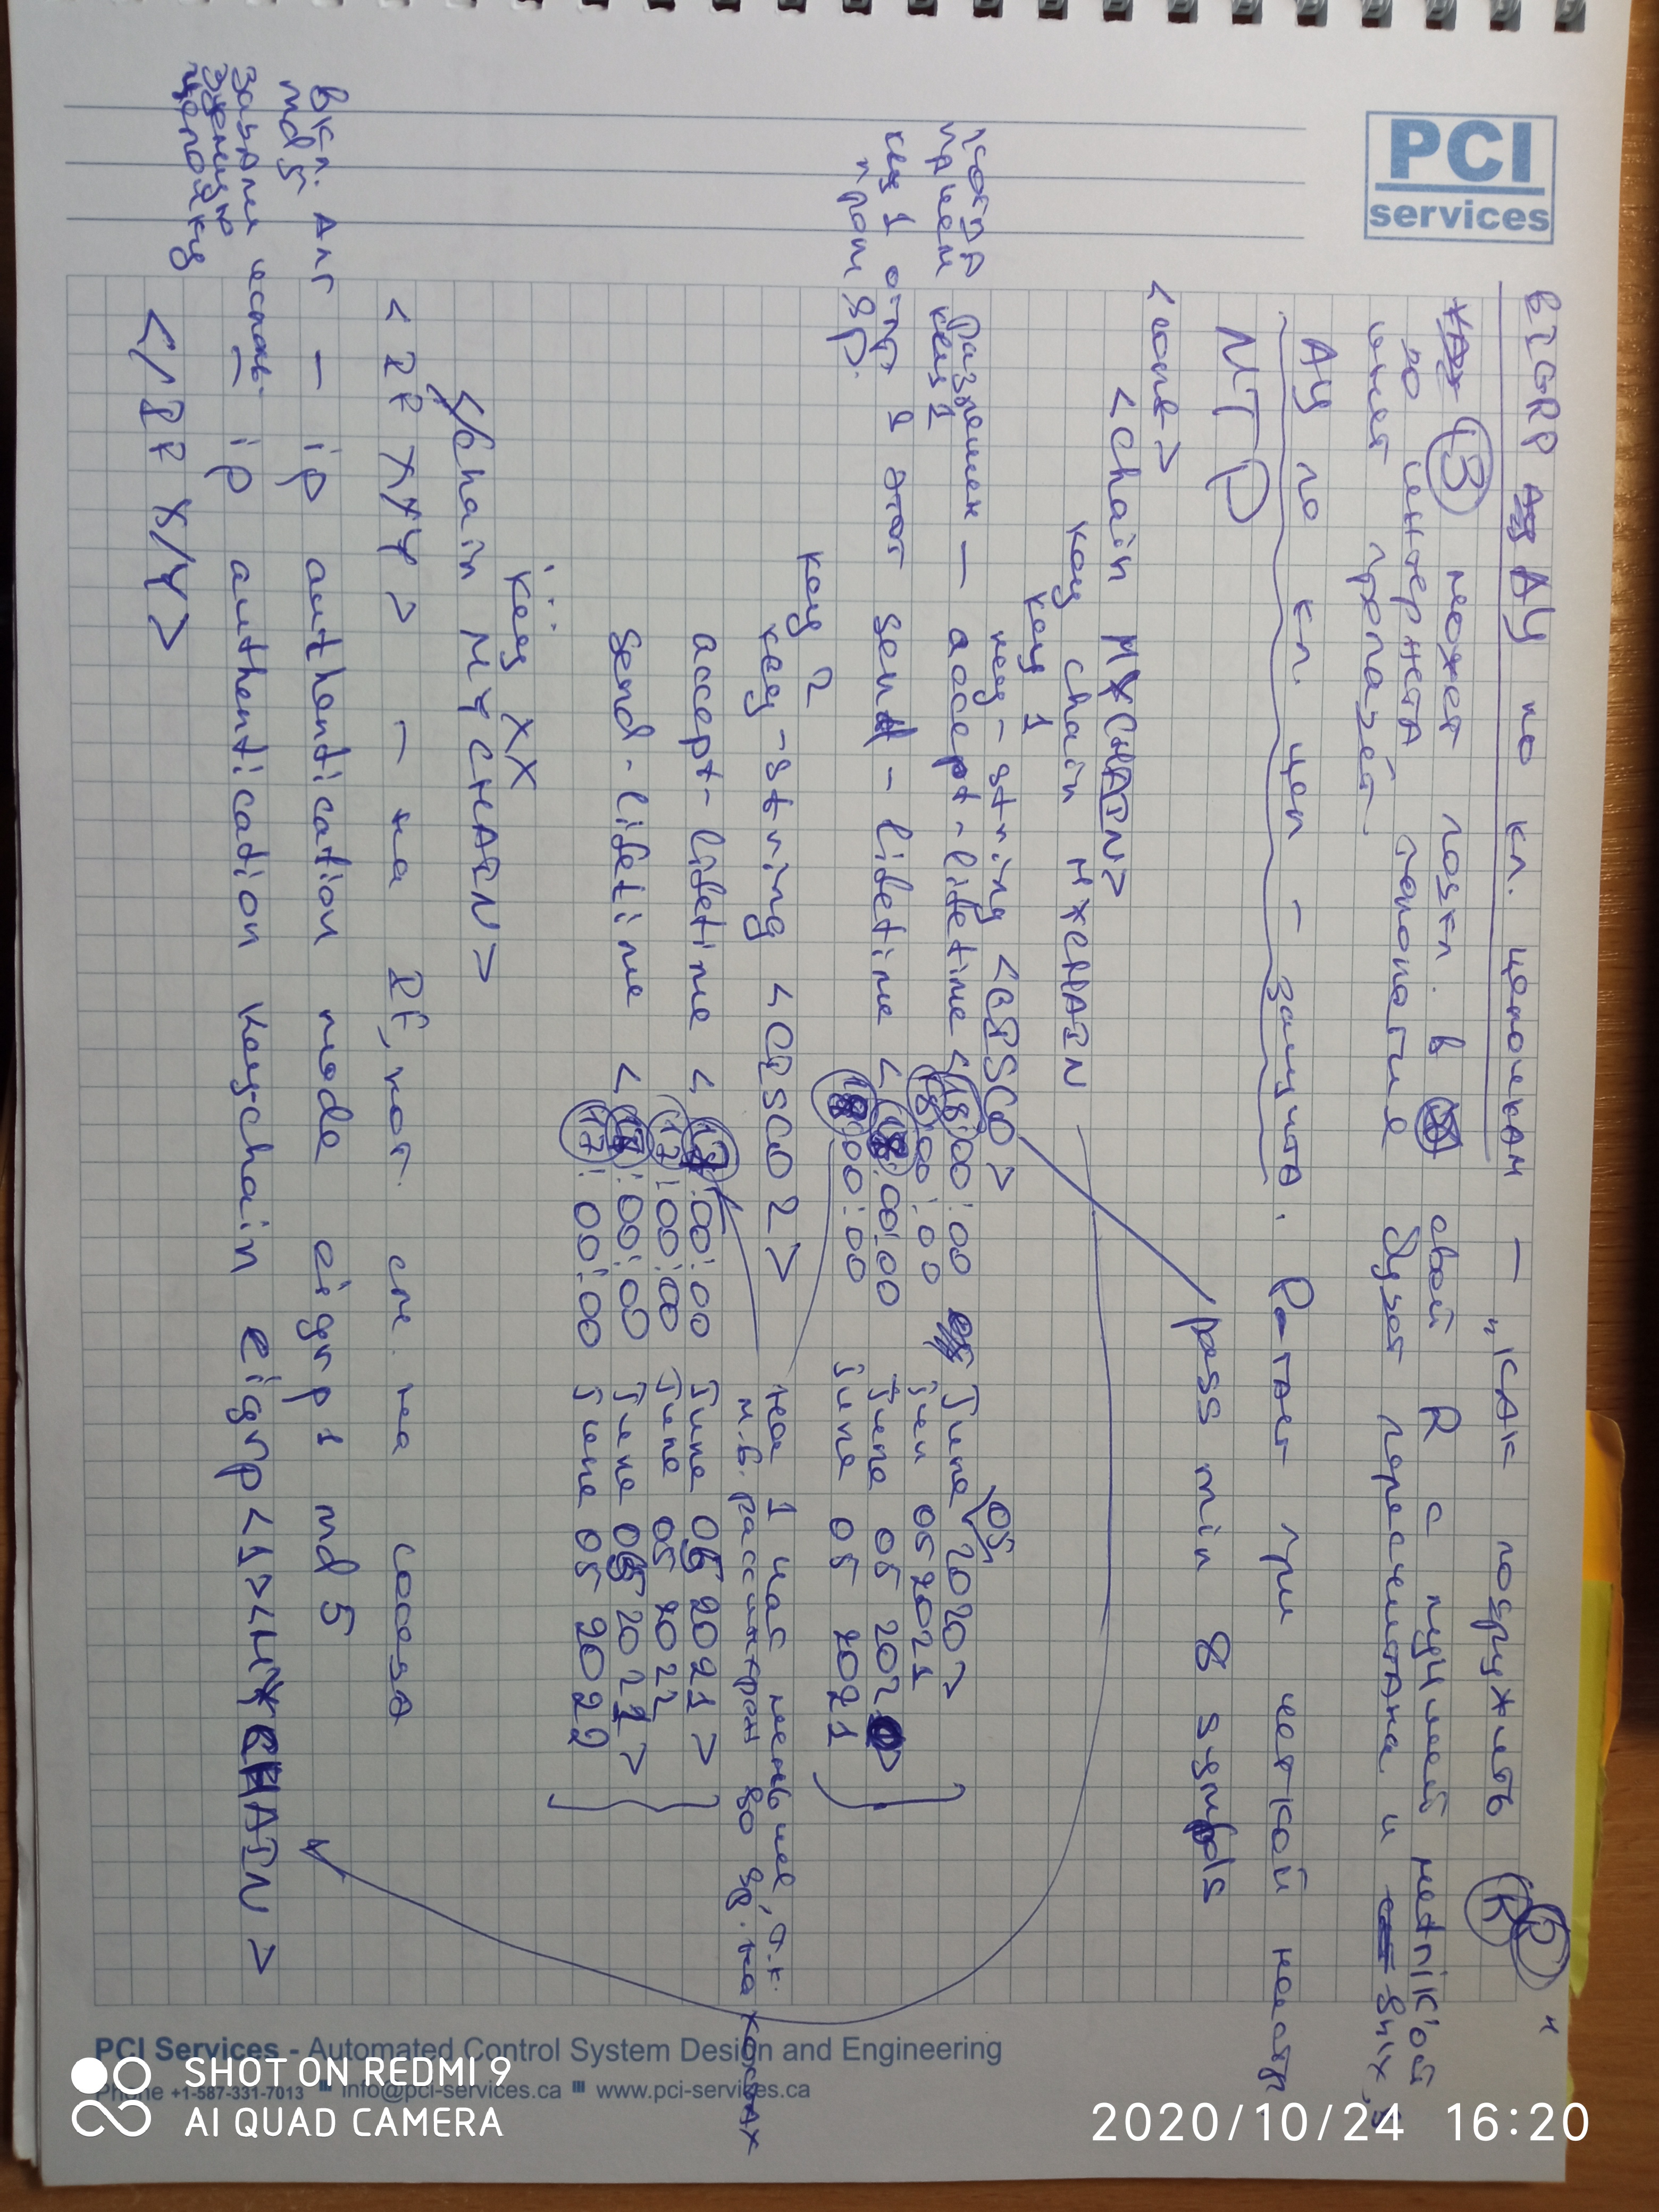 PCI services
EIGRP АУ по кл. цепочкам — „КАК подружить R и R
З может подкл. в свой R с лучшей metrik'ой
до интернета, топология будет пересчитана и вых, в
инет пропадёт.
АУ по кл. цеп — защита. Р-тает при четкой настр
NTP
pass min 8 symbols
<conf>
<chain MYCHAIN>
key chain MYCHAIN
key 1
key-string <CISCO>
05
когда разрешен — accept-lifetime <18:00:00 June 2020>
прием key 1
18:00:00 Jun 05 2021
key 1 отпр в этот send-lifetime <18:00:00 June 05 2020>
пром вр.
18:00:00 June 05 2021
key 2
key-string <CISCO2>
на 1 час меньше, т.к.
м.б. рассинхрон во вр. на хостах
accept-lifetime <17:00:00 June 05 2021>
17:00:00 June 05 2022
send-lifetime <17:00:00 June 05 2021>
17:00:00 June 05 2022
...
key XX
</chain MYCHAIN>
<IF X/Y> — на IF, кот. см. на соседа
Вкл. Алг — ip authentication mode eigrp 1 md5
md5
задали исполь- — ip authentication key-chain eigrp <1> <MYCHAIN>
цепочку
</IF X/Y>
PCI Services - Automated Control System Design and Engineering
Phone +1-587-331-7013 ■ info@pci-services.ca ■ www.pci-services.ca
2020/10/24 16:20
SHOT ON REDMI 9
AI QUAD CAMERA